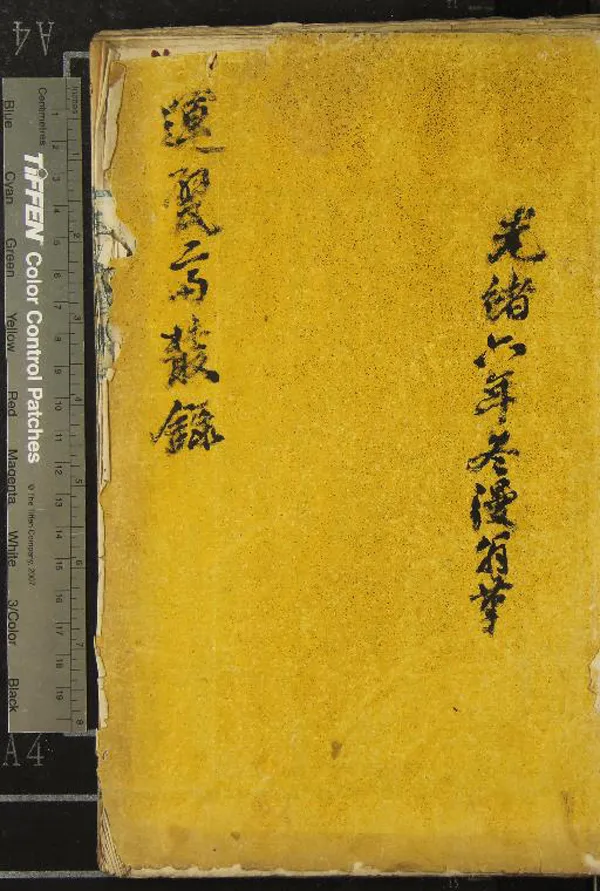 光緒六年冬漫翁筆
運甓齋叢錄
A4
Inches
Centimetres
1 2 3 4 5 6 7 8
1 2 3 4 5 6 7 8 9 10 11 12 13 14 15 16 17 18 19
TIFFEN Color Control Patches
© The Tiffen Company, 2007
Blue Cyan Green Yellow Red Magenta White 3/Color Black
A4